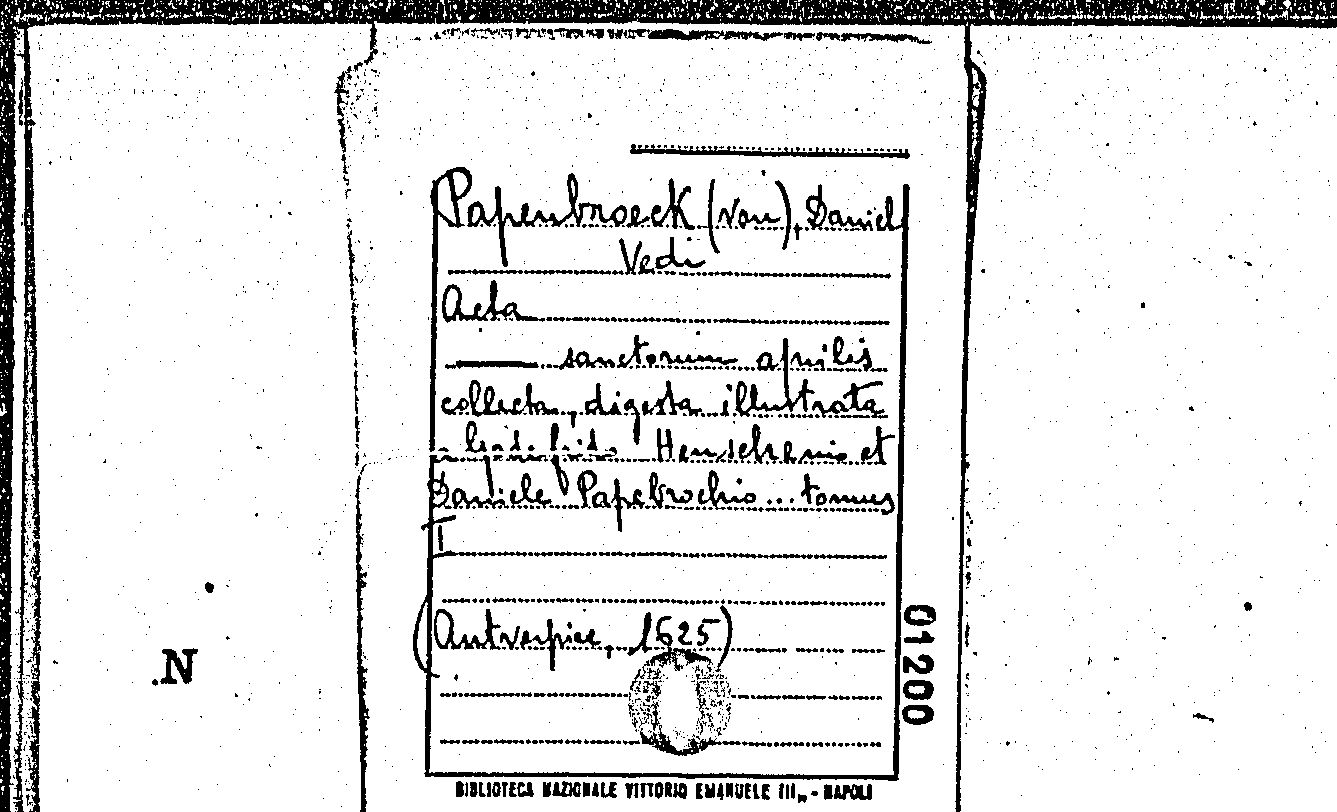 Papenbroeck (van), Daniel
Vedi
Acta
sanctorum aprilis
collecta, digesta illustrata
Henschenio et
Daniele Papebrochio... tomus
I
(Antverpiae, 1625)
01200
.N
BIBLIOTECA NAZIONALE VITTORIO EMANUELE III„ - NAPOLI